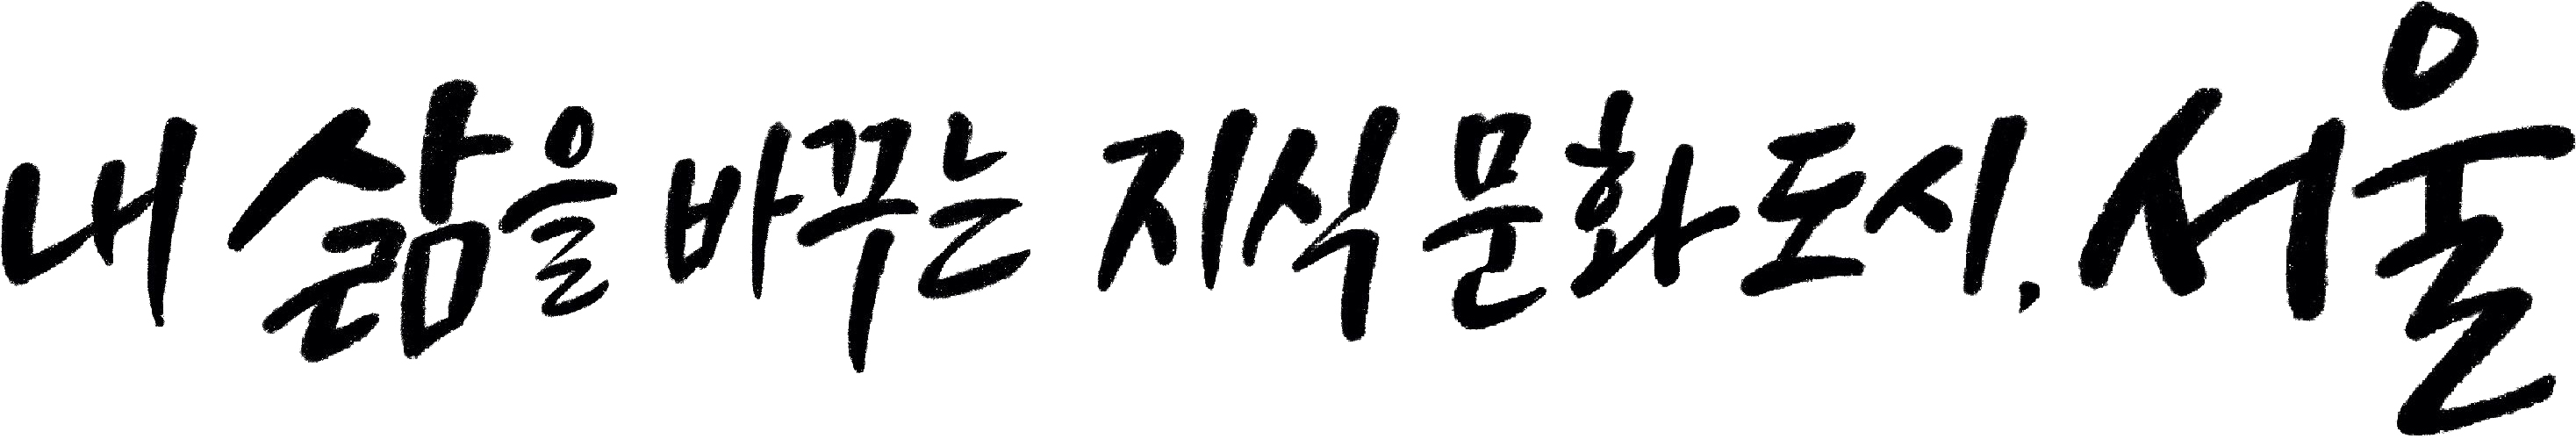 내 삶을 바꾸는 지식 문화 도시, 서울